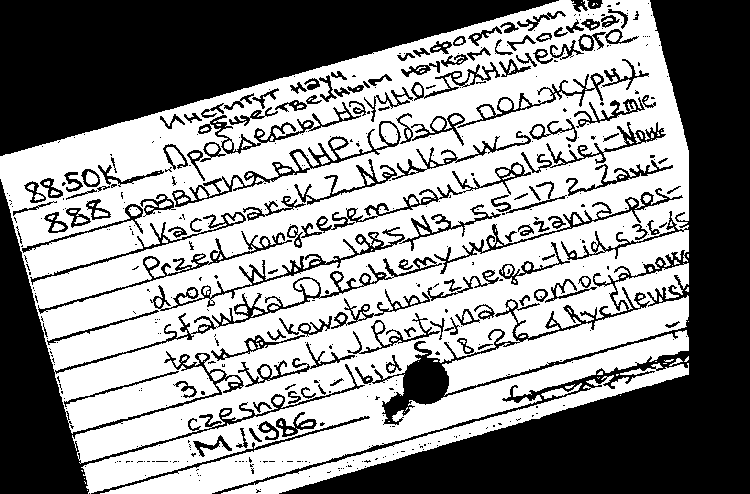 Институт науч. информации по
общественным наукам (Москва).
88.50К Проблемы научно-технического
888 развития в ПНР: (Обзор пол. журн.):
1 Kaczmarek Z Nauka w socjalizmie.
Przed kongresem nauki polskiej-Now.
drogi, W-wa, 1985, N3, s.5-17 2 Zawi-
sławska D. Problemy wdrażania pos-
tępu naukowotechnicznego.-Ibid, s.36-45
3. Patorski J. Partyjna promocja nowo
czesności-Ibid S. 18-26 4 Rychlewsk
М., 1986.
См. след.